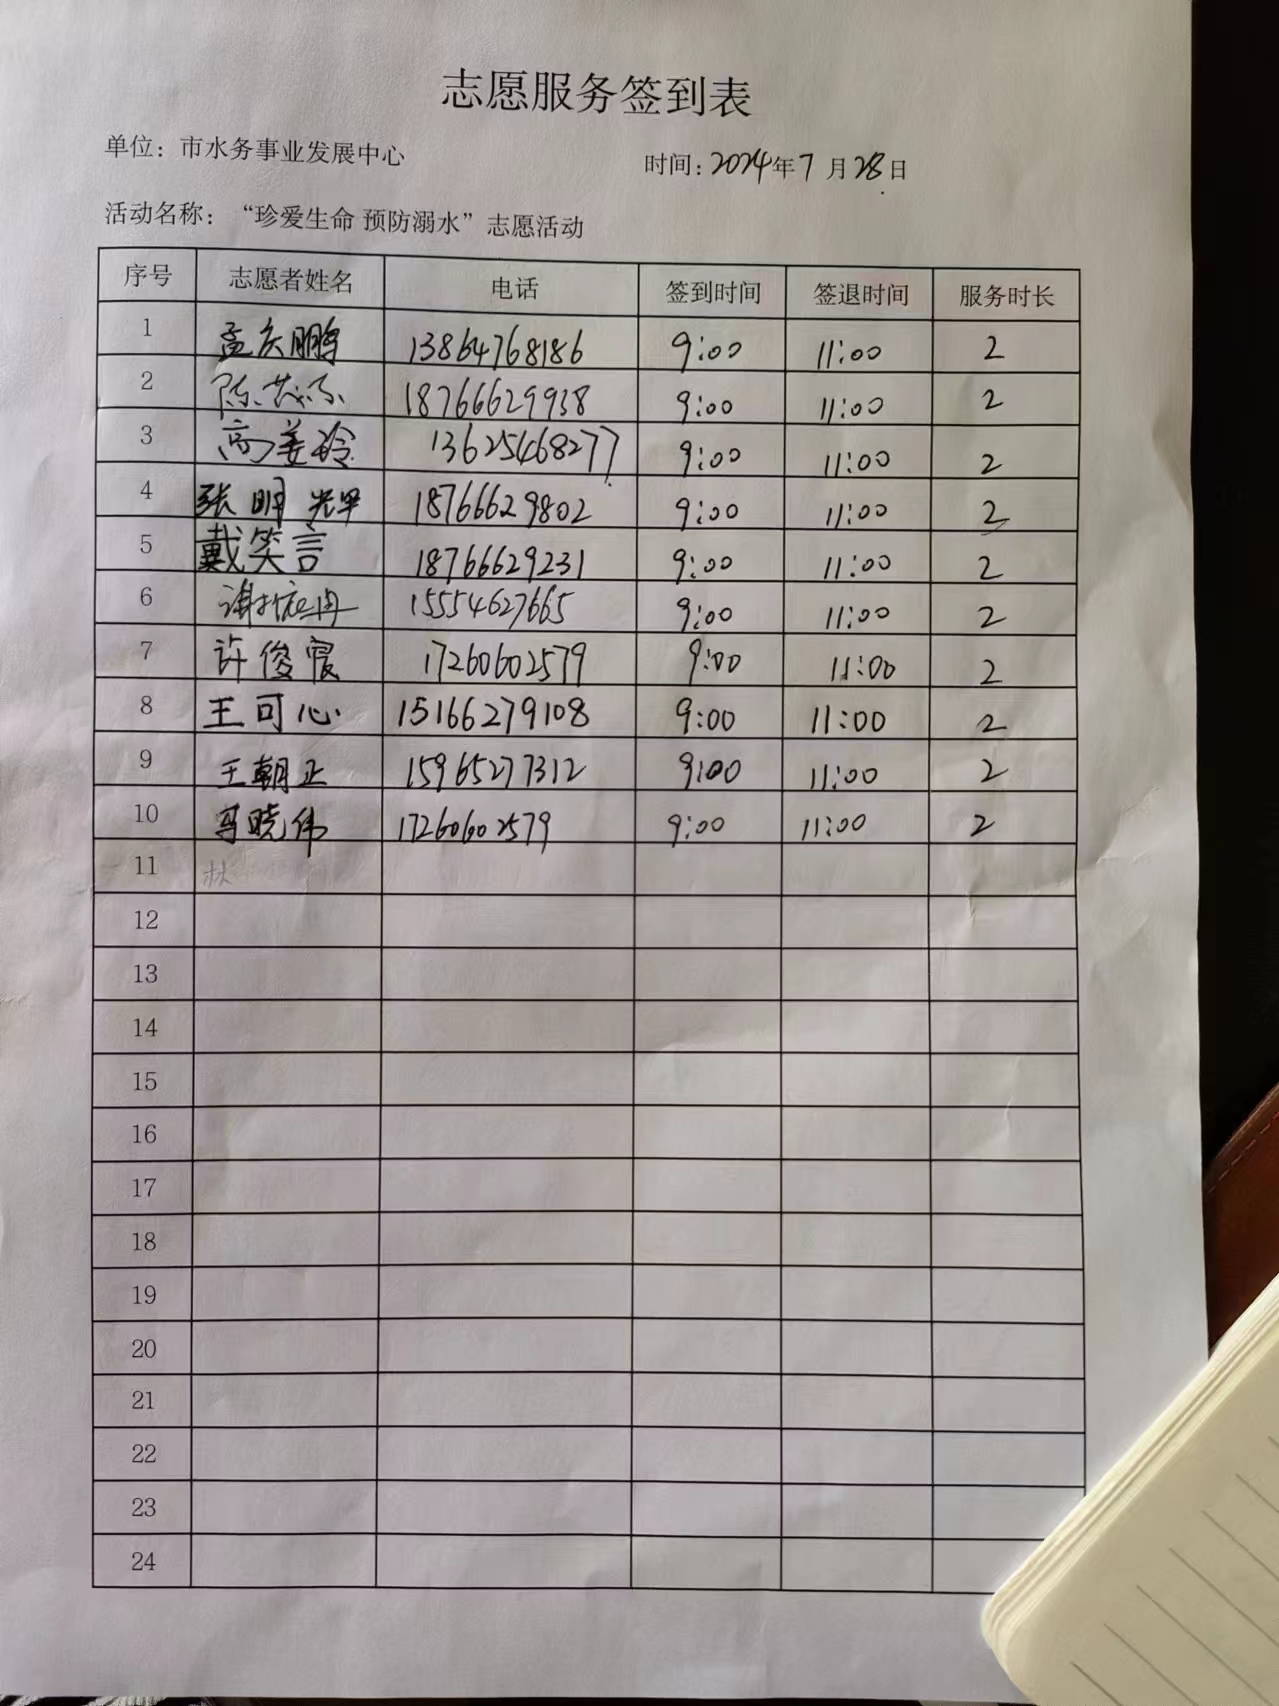 志愿服务签到表
单位：市水务事业发展中心 时间：2024年7月28日
活动名称：“珍爱生命 预防溺水”志愿活动
序号 志愿者姓名 电话 签到时间 签退时间 服务时长
1 孟庆鹏 13864768186 9:00 11:00 2
2 陈 18766629938 9:00 11:00 2
3 高姜玲 13625468277 9:00 11:00 2
4 张明 18766629802 9:00 11:00 2
5 戴笑言 18766629231 9:00 11:00 2
6 谢 15554627665 9:00 11:00 2
7 许俊宸 17260602579 9:00 11:00 2
8 王可心 15166279108 9:00 11:00 2
9 王朝正 15965277312 9:00 11:00 2
10 马晓伟 17260602579 9:00 11:00 2
11 林
12
13
14
15
16
17
18
19
20
21
22
23
24